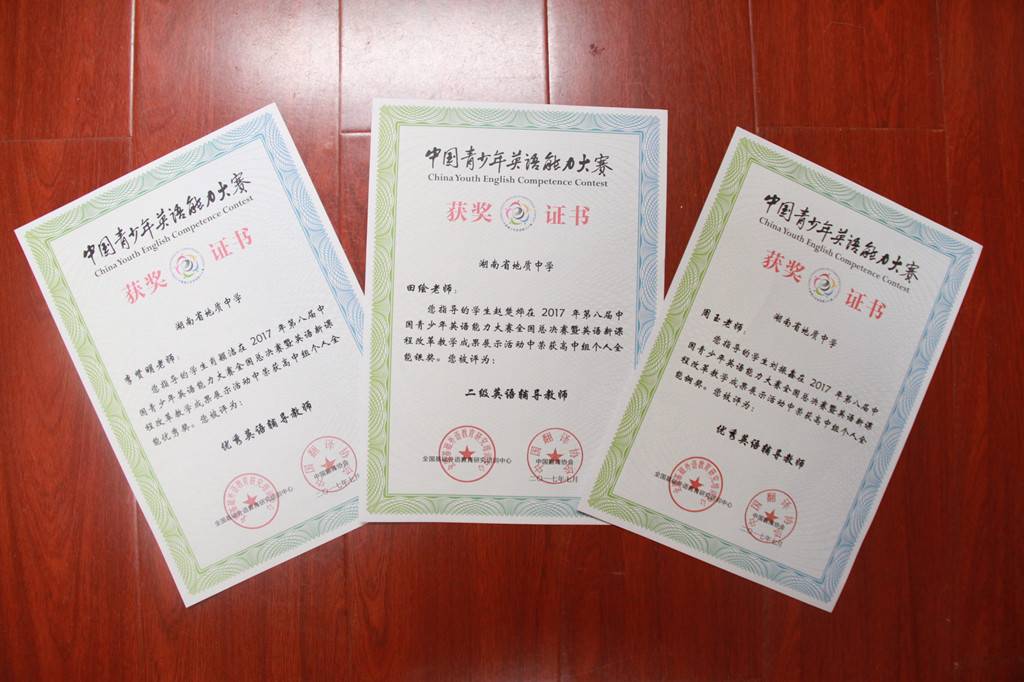 中国青少年英语能力大赛
China Youth English Competence Contest
获奖 证书
湖南省地质中学
老师：
您指导的学生肖颖洁在 2017 年第八届中
国青少年英语能力大赛全国总决赛暨英语新课
程改革教学成果展示活动中荣获高中组个人全
能优秀奖。您被评为：
优秀英语辅导教师
全国基础外语教育研究培训中心
中国翻译协会
二〇一七年七月
中国青少年英语能力大赛
China Youth English Competence Contest
获奖 证书
湖南省地质中学
田绘老师：
您指导的学生赵楚烨在 2017 年第八届中
国青少年英语能力大赛全国总决赛暨英语新课
程改革教学成果展示活动中荣获高中组个人全
能银奖。您被评为：
二级英语辅导教师
全国基础外语教育研究培训中心
中国翻译协会
二〇一七年七月
中国青少年英语能力大赛
China Youth English Competence Contest
获奖 证书
湖南省地质中学
周玉老师：
您指导的学生刘振鑫在 2017 年第八届中
国青少年英语能力大赛全国总决赛暨英语新课
程改革教学成果展示活动中荣获高中组个人全
能铜奖。您被评为：
优秀英语辅导教师
中国翻译协会
二〇一七年七月